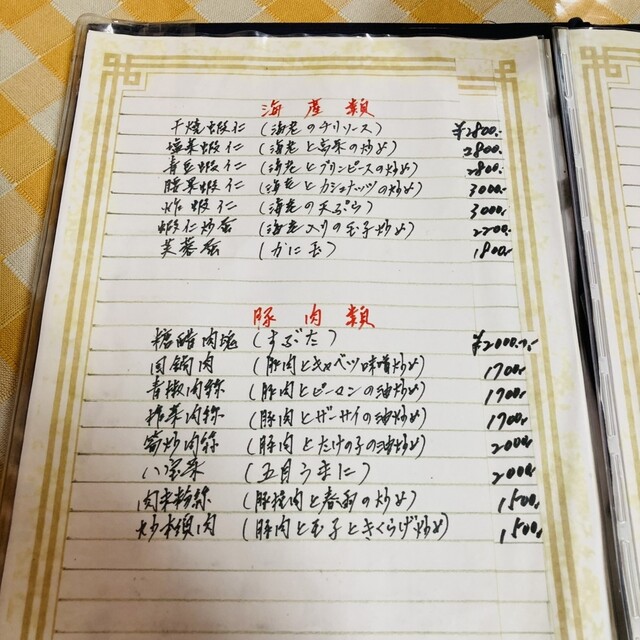 海産類
干焼蝦仁 (海老のチリソース) ¥2800.-
塩菜蝦仁 (海老と高菜の炒め) 2800.-
青豆蝦仁 (海老とグリンピースの炒め) 2800.-
腰果蝦仁 (海老とカシュナッツの炒め) 3000.-
炸蝦仁 (海老の天ぷら) 3000.-
蝦仁炒蛋 (海老入りの玉子炒め) 2200.-
芙蓉蛋 (かに玉) 1800.-
豚肉類
糖醋肉塊 (すぶた) ¥2000.-
回鍋肉 (豚肉とキャベツ味噌炒め) 1700.-
青椒肉絲 (豚肉とピーマンの油炒め) 1700.-
搾菜肉絲 (豚肉とザーサイの油炒め) 1700.-
炒肉絲 (豚肉とたけの子の油炒め) 2000.-
八宝菜 (五目うまに) 2000.-
肉末粉絲 (豚挽肉と春雨の炒め) 1500.-
炒木須肉 (豚肉と玉子ときくらげ炒め) 1500.-